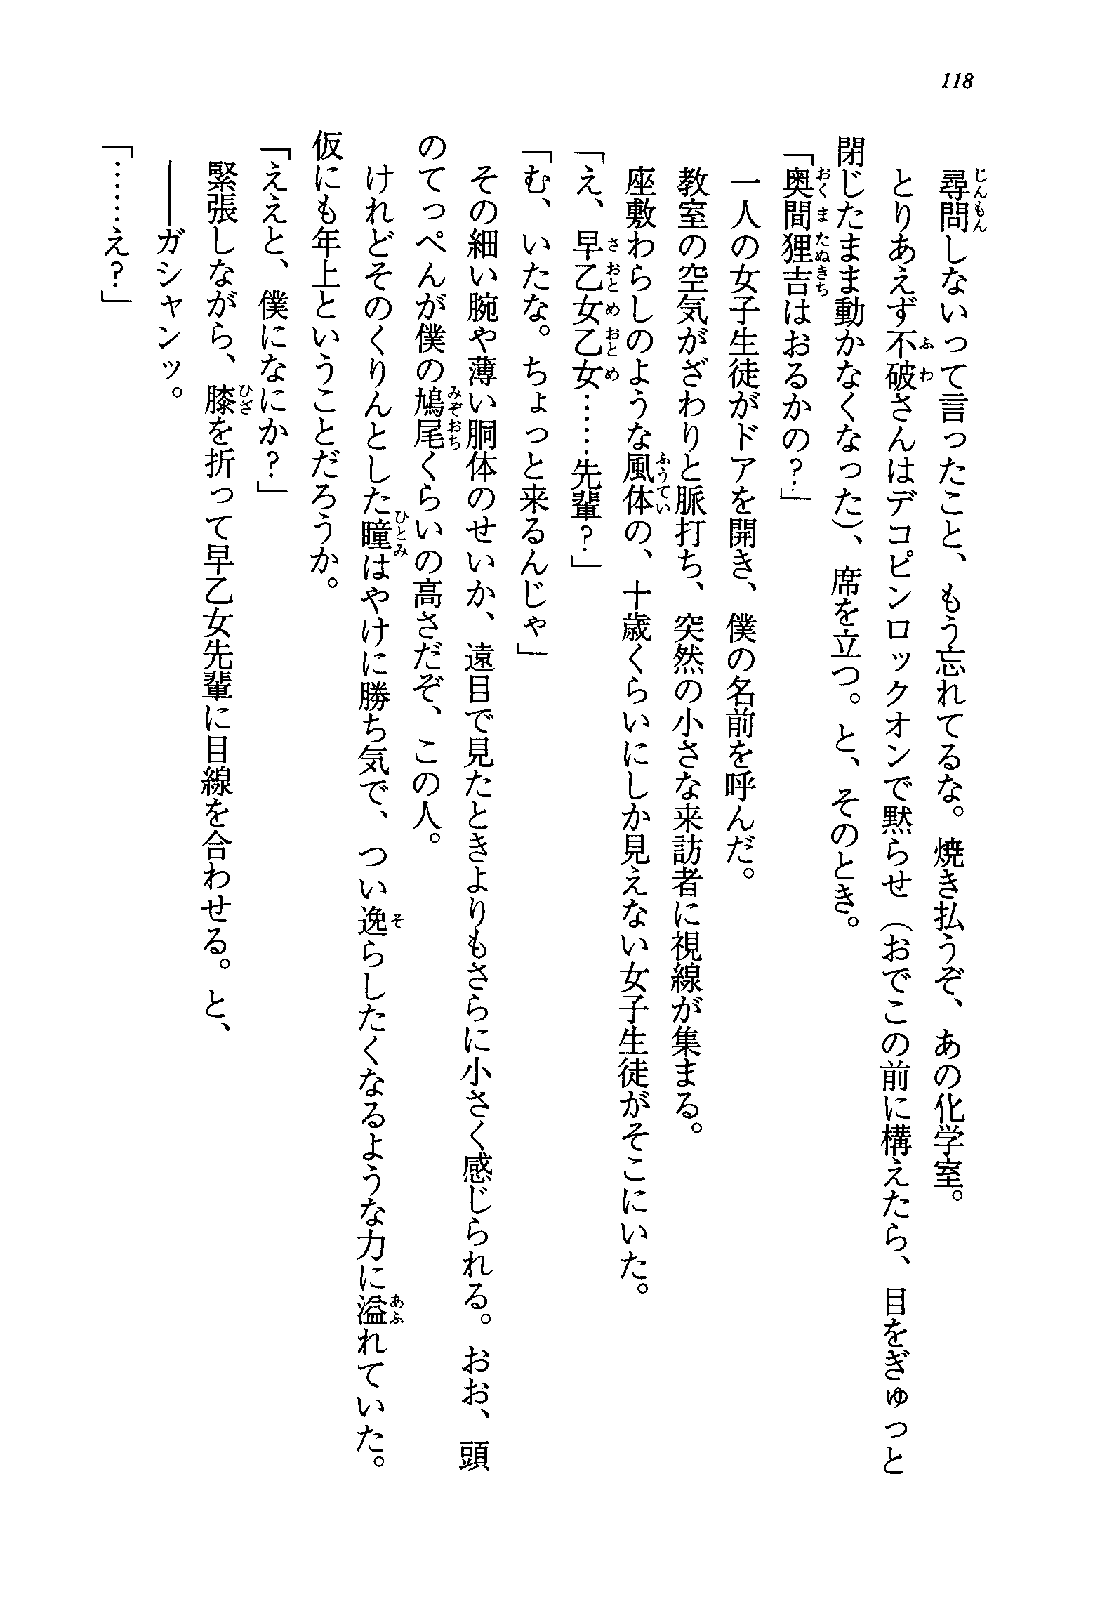 118
尋問しないって言ったこと、もう忘れてるな。焼き払うぞ、あの化学室。
とりあえず不破さんはデコピンロックオンで黙らせ（おでこの前に構えたら、目をぎゅっと
閉じたまま動かなくなった）、席を立つ。と、そのとき。
「奥間狸吉はおるかの？」
一人の女子生徒がドアを開き、僕の名前を呼んだ。
教室の空気がざわりと脈打ち、突然の小さな来訪者に視線が集まる。
座敷わらしのような風体の、十歳くらいにしか見えない女子生徒がそこにいた。
「え、早乙女乙女……先輩？」
「む、いたな。ちょっと来るんじゃ」
その細い腕や薄い胴体のせいか、遠目で見たときよりもさらに小さく感じられる。おお、頭
のてっぺんが僕の鳩尾くらいの高さだぞ、この人。
けれどそのくりんとした瞳はやけに勝ち気で、つい逸らしたくなるような力に溢れていた。
仮にも年上ということだろうか。
「ええと、僕になにか？」
緊張しながら、膝を折って早乙女先輩に目線を合わせる。と、
――ガシャンッ。
「……え？」